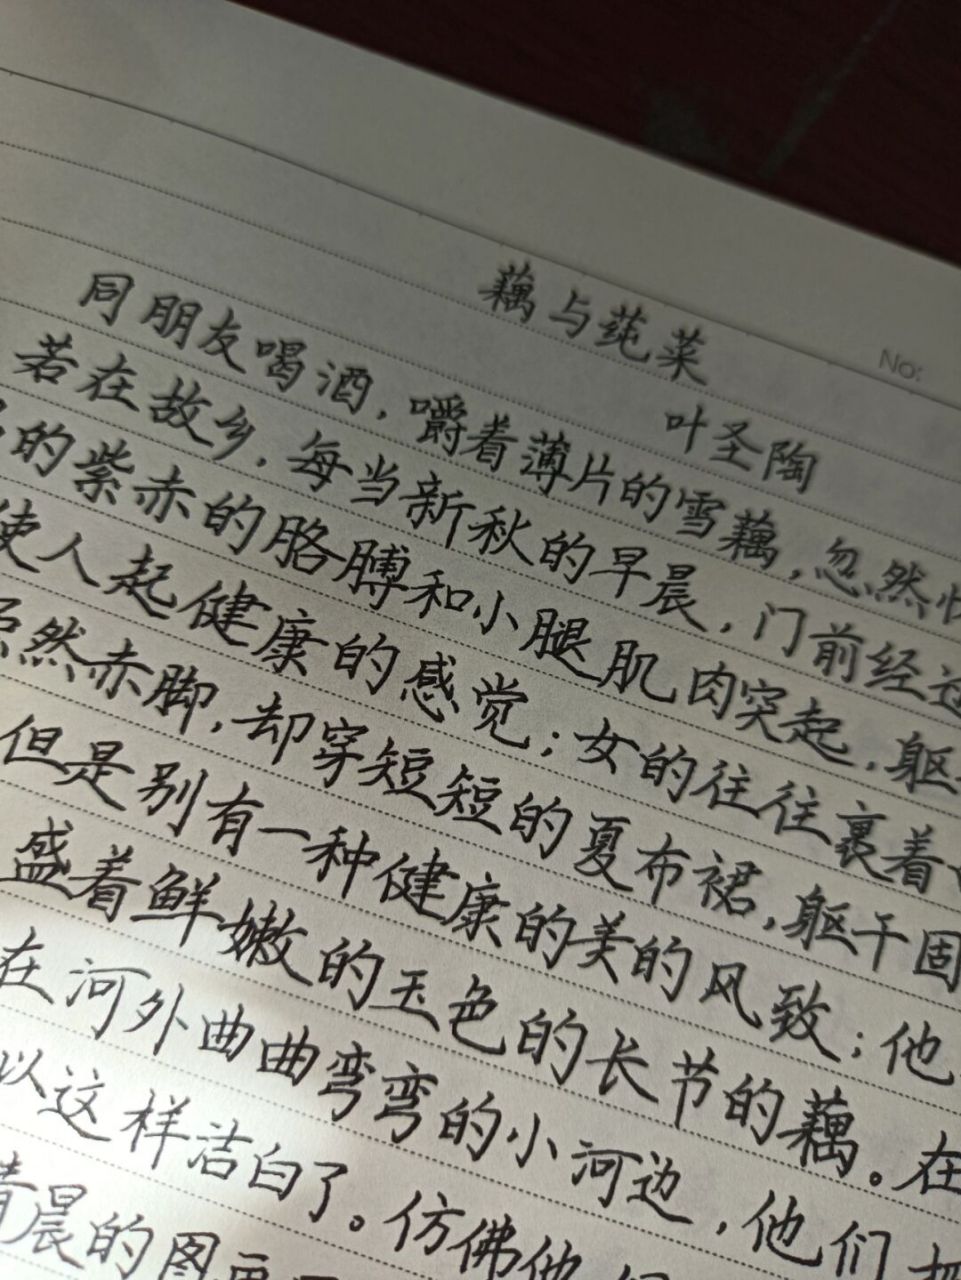 藕与莼菜
No:
叶圣陶
同朋友喝酒，嚼着薄片的雪藕，忽然
若在故乡，每当新秋的早晨，门前经过
的紫赤的胳膊和小腿肌肉突起，躯
使人起健康的感觉；女的往往裹着
虽然赤脚，却穿短短的夏布裙，躯干固
但是别有一种健康的美的风致；他
盛着鲜嫩的玉色的长节的藕。在
在河外曲曲弯弯的小河边，他们把
以这样洁白了。仿佛他们
清晨的图画